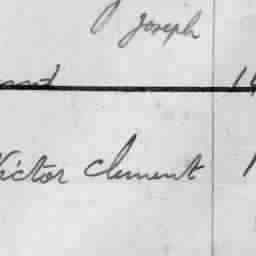 Joseph
Victor Clement